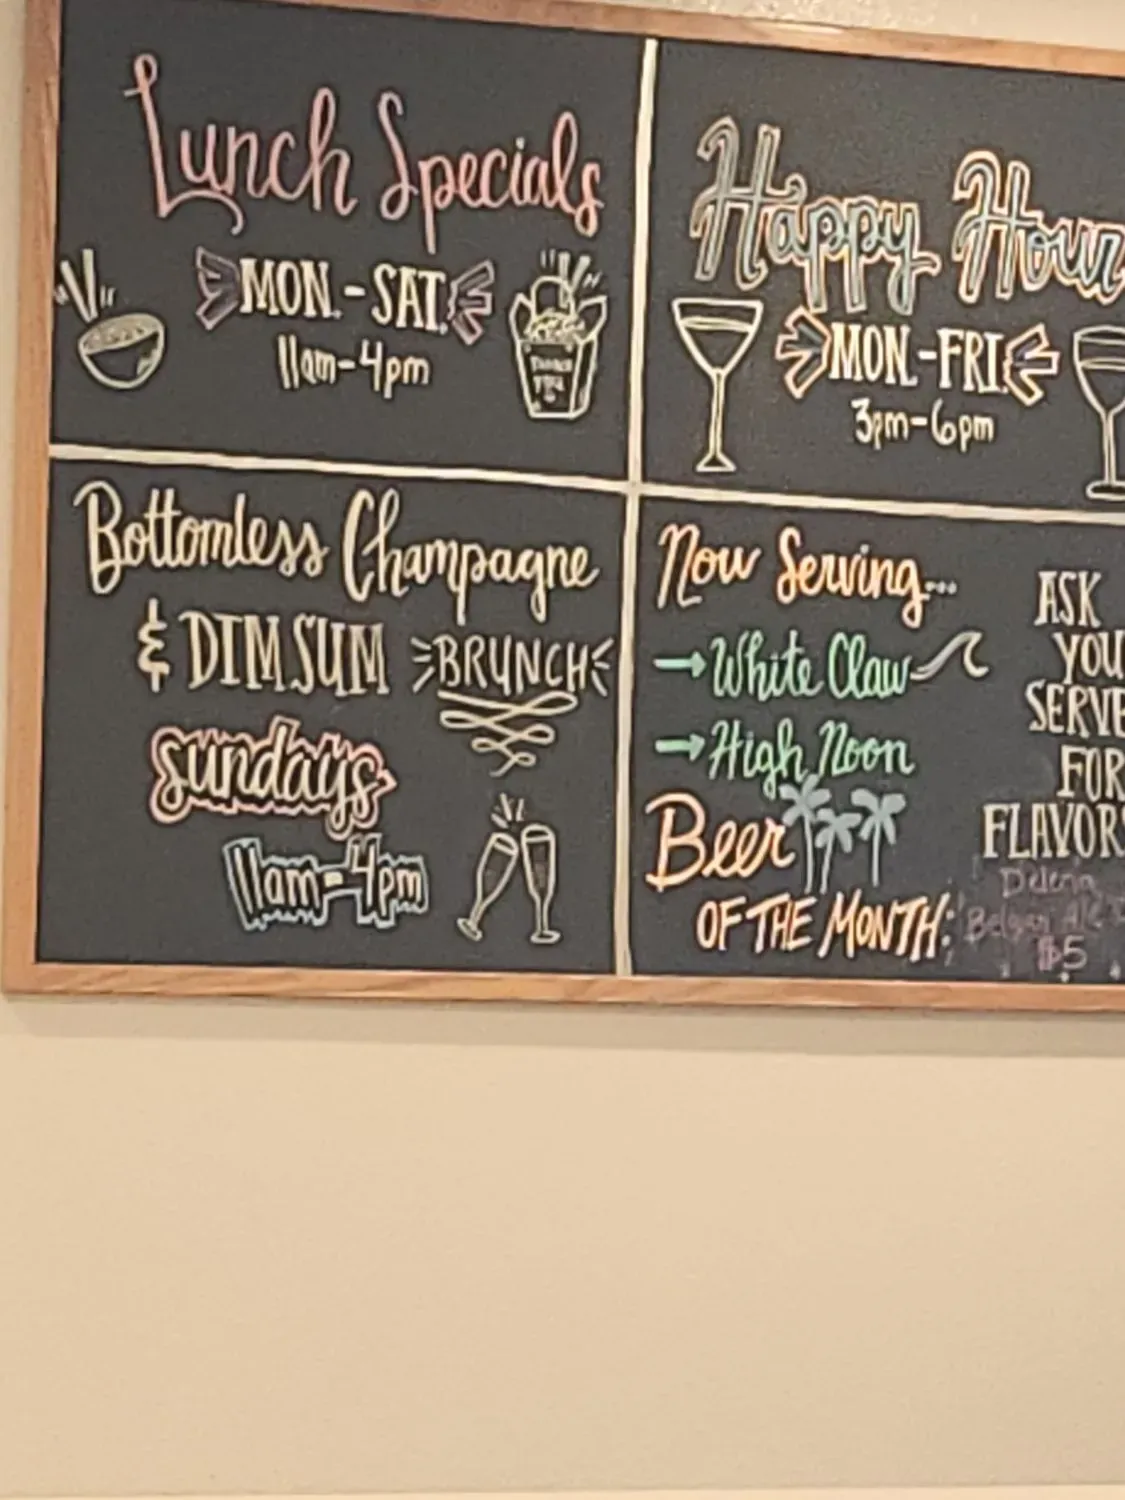 Lunch Specials
MON.-SAT.
11am-4pm
THANK
YOU
Happy Hour
MON.-FRI.
3pm-6pm
Bottomless Champagne
& DIM SUM BRUNCH
sundays
11am-4pm
Now Serving...
→ White Claw
→ High Noon
ASK
YOU
SERVE
FOR
FLAVOR
Beer
OF THE MONTH:
Ale
$5